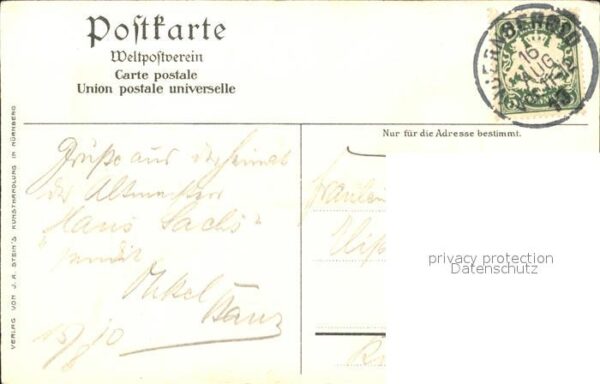 Postkarte
Weltpostverein
Carte postale
Union postale universelle
NUERNBERG
16
AUG
Nur für die Adresse bestimmt.
VERLAG VON J. A. STEIN'S KUNSTHANDLUNG IN NÜRNBERG
Grüße aus der Heimat
des Altmeisters
"Hans Sachs"
sendet
Onkel
Fräulein
privacy protection
Datenschutz